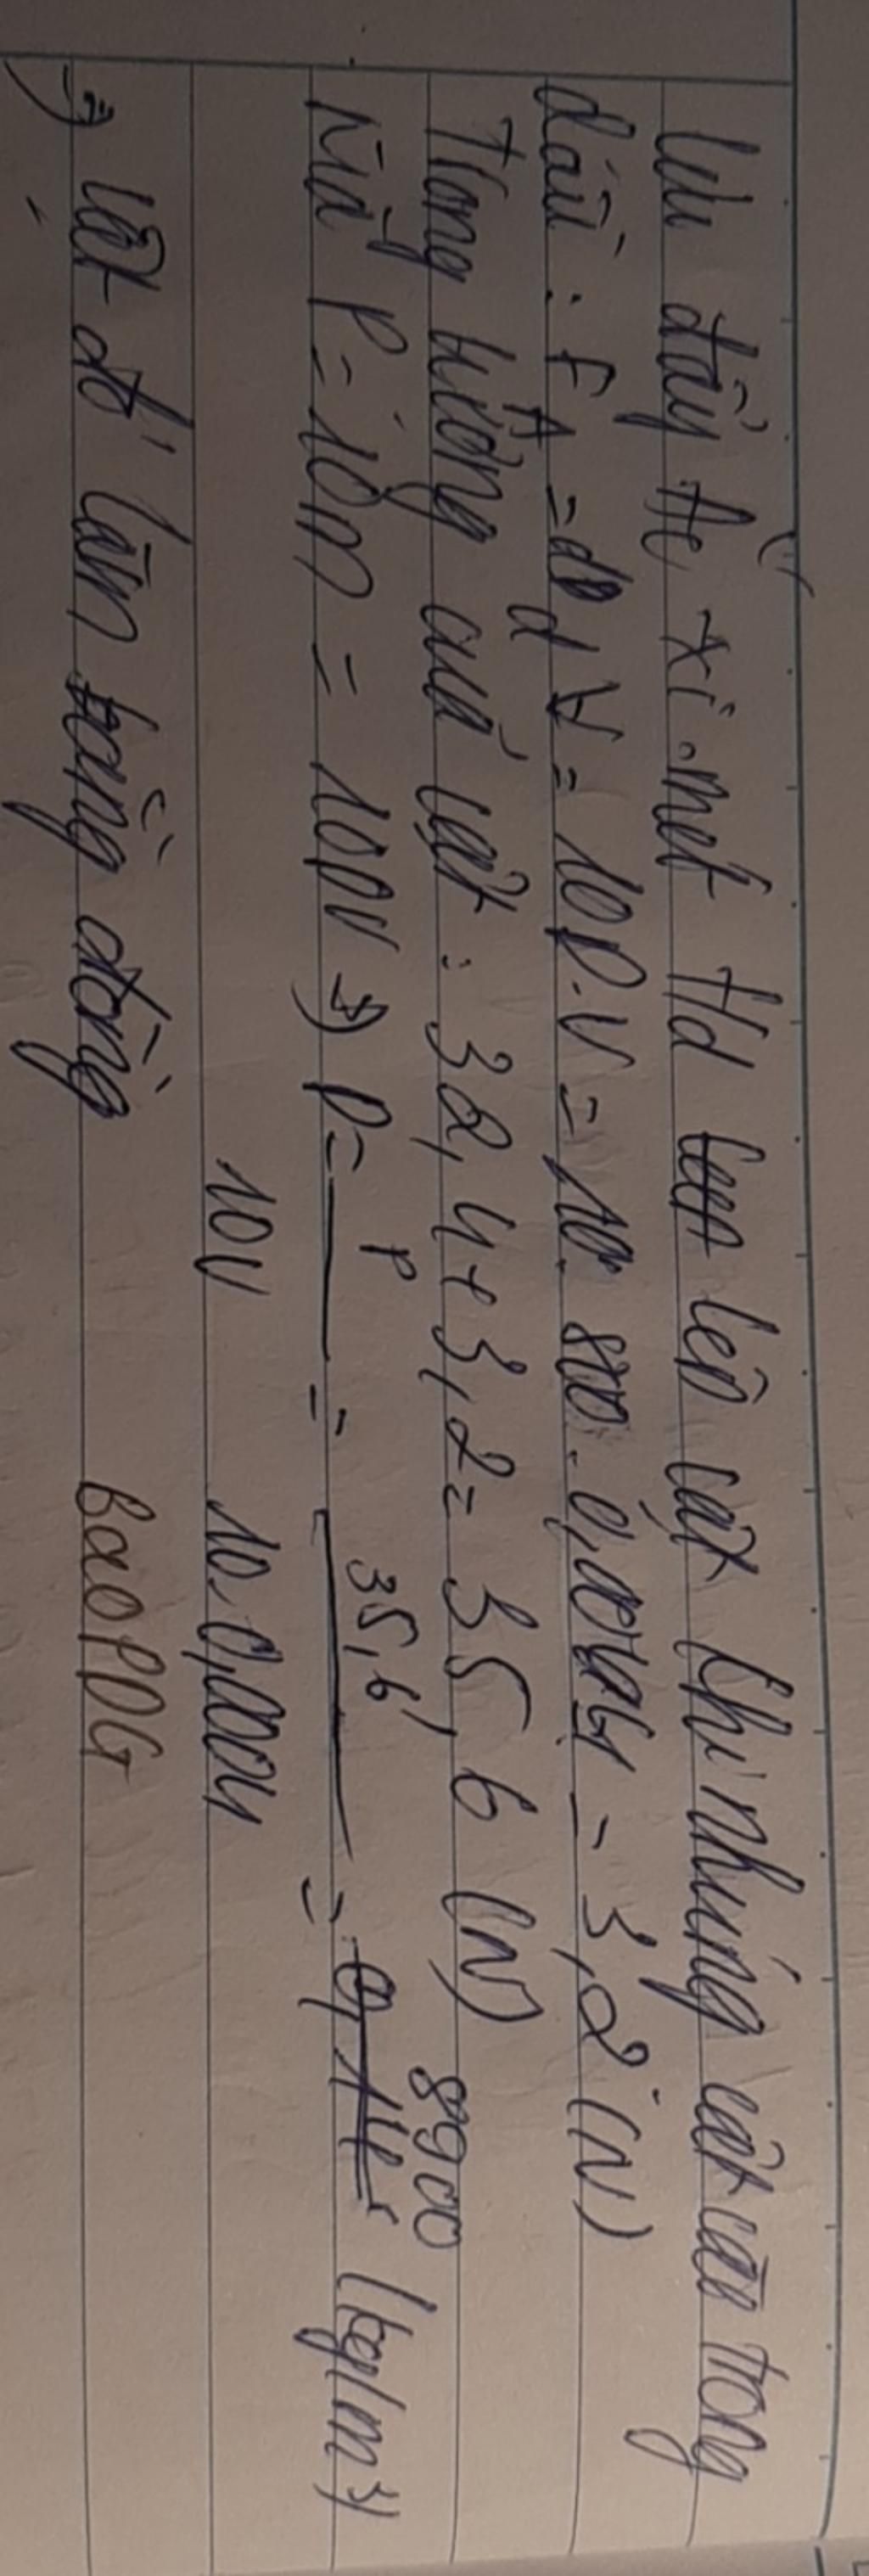 Lực đẩy Ac xi-met td lên vật khi nhúng vật vào trong
dầu : FA = dd V = 10D.V = 10. 800. 0,0004 = 3,2 (N)
Trọng lượng của vật : 32,4 + 3,2 = 35,6 (N)
Mà P = 10m = 10DV => D = P = 35,6 = 8900 (kg/m3)
10V 10.0,0004
=> vật đó làm bằng đồng
BaoPDG